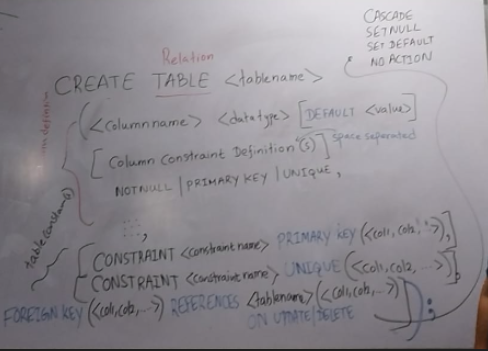 CASCADE
SET NULL
SET DEFAULT
NO ACTION
Relation
CREATE TABLE <tablename>
(<columnname> <datatype> [DEFAULT <value>]
[Column Constraint Definition(s)] space separated
NOTNULL | PRIMARY KEY | UNIQUE,
table constraint(s)
[CONSTRAINT <constraint name> PRIMARY KEY (<col1, col2, ...>),]
[CONSTRAINT <constraint name> UNIQUE (<col1, col2, ...>)],
FOREIGN KEY (<col1, col2, ...>) REFERENCES <tablename> (<col1, col2, ...>)
ON UPDATE/DELETE
);